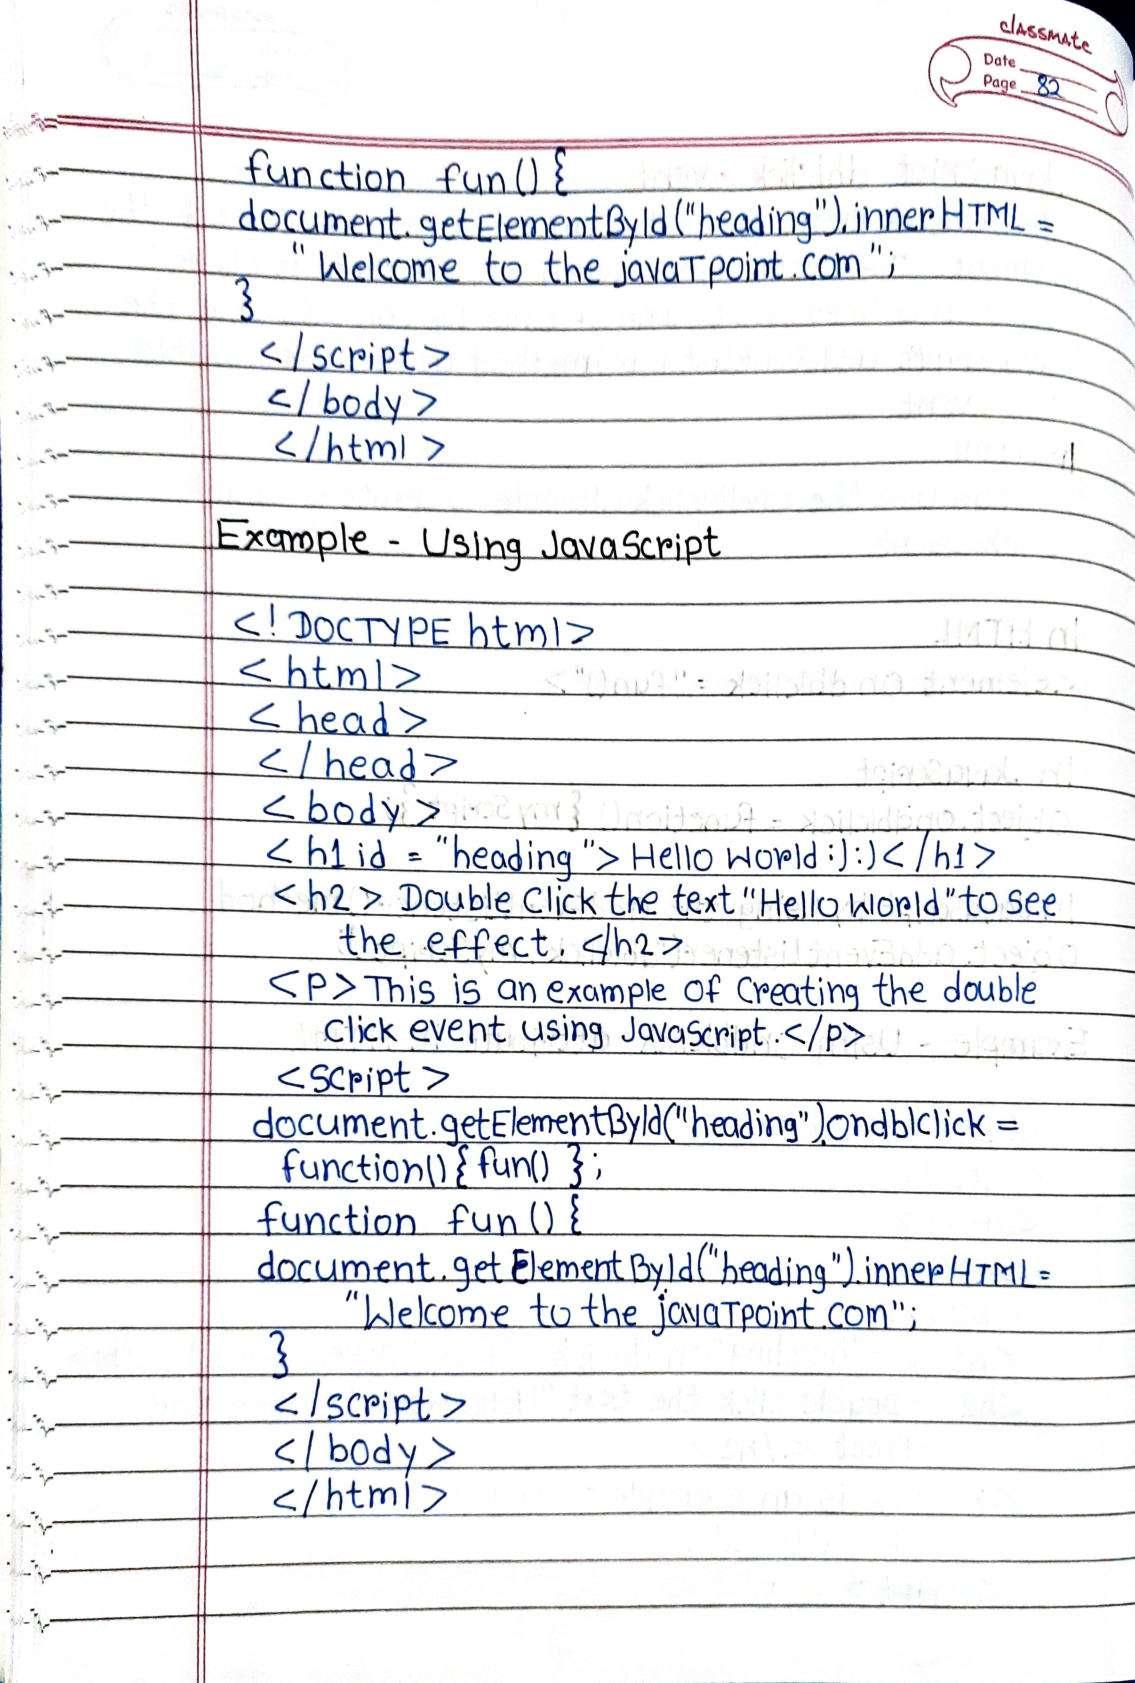 classmate
Date
Page 82
function fun() {
document.getElementById("heading").innerHTML =
"Welcome to the javaTpoint.com";
}
</script>
</body>
</html>
Example - Using JavaScript
<!DOCTYPE html>
<html>
<head>
</head>
<body>
<h1 id = "heading"> Hello world :):)</h1>
<h2> Double Click the text "Hello world" to see
the effect. </h2>
<p> This is an example of Creating the double
click event using JavaScript.</p>
<script>
document.getElementById("heading").ondblclick =
function() { fun() };
function fun() {
document.getElementById("heading").innerHTML =
"Welcome to the javaTpoint.com";
}
</script>
</body>
</html>